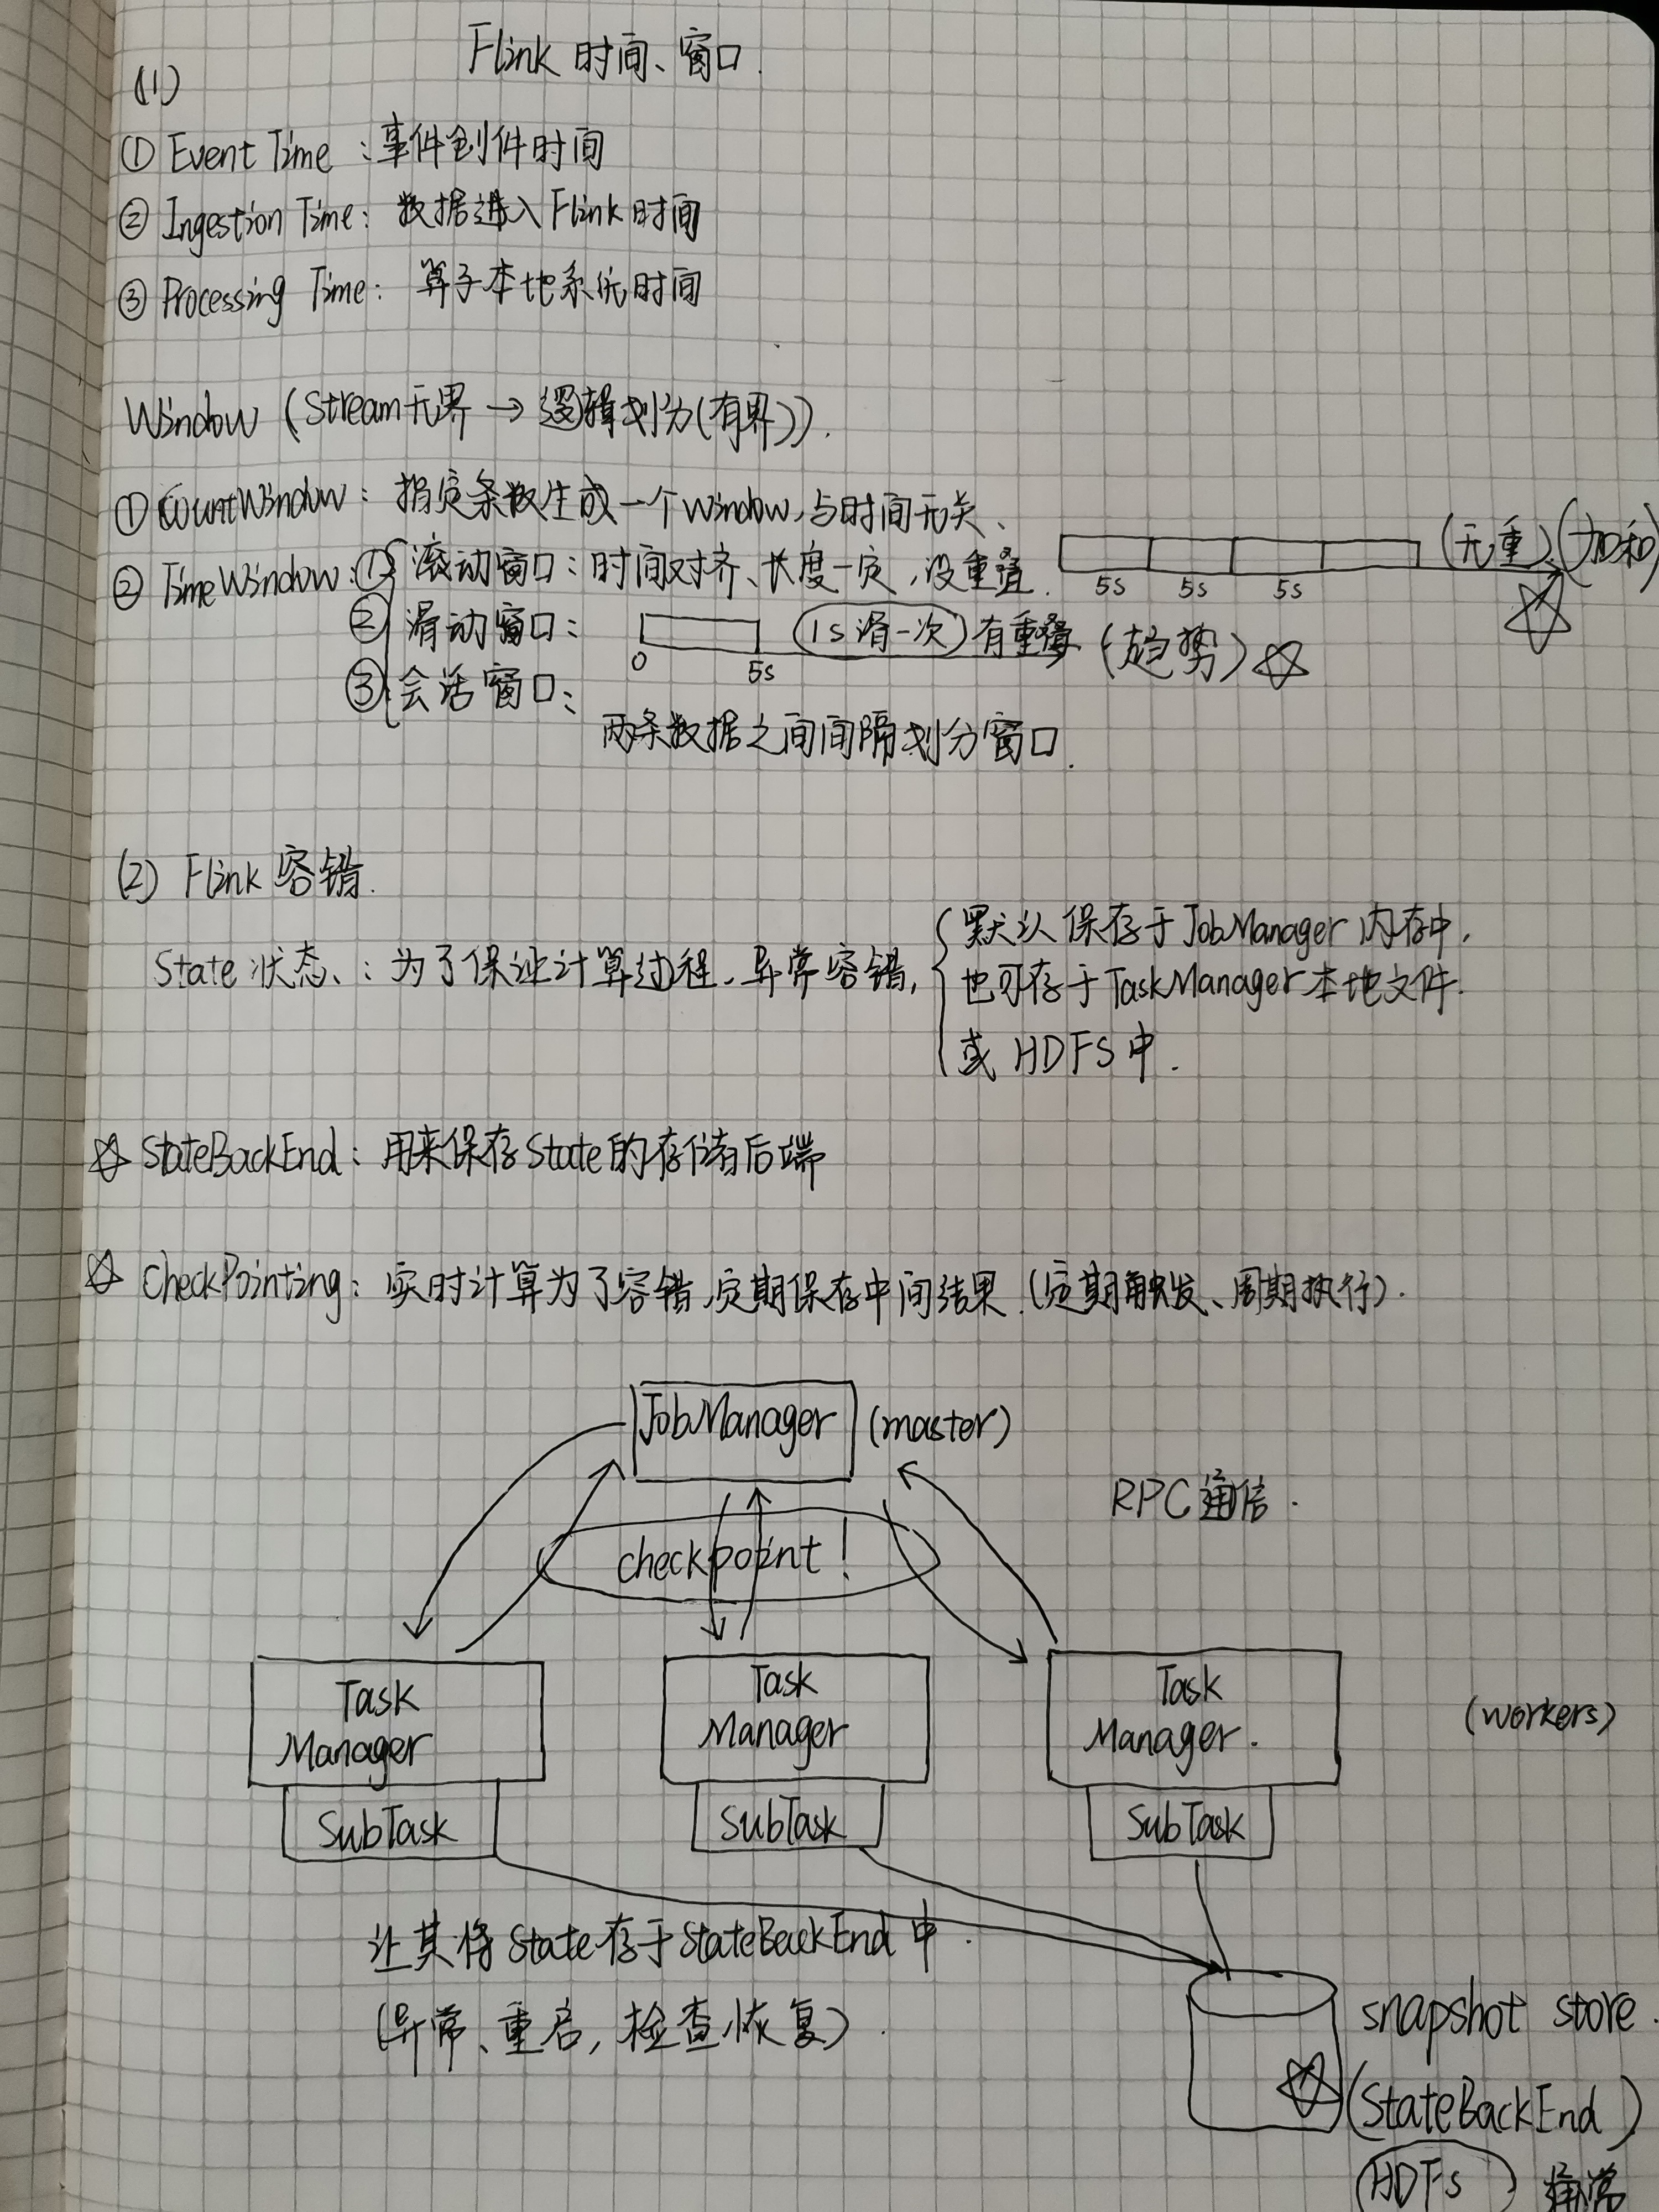 Flink 时间、窗口.
(1)
① Event Time : 事件创件时间
② Ingestion Time: 数据进入 Flink 时间
③ Processing Time: 算子本地系统时间
Window (Stream无界 → 逻辑划分(有界)).
① CountWindow: 指定条数生成一个Window, 与时间无关、
② TimeWindow: ① 滚动窗口: 时间对齐、长度一定, 没重叠. 5s 5s 5s (无重)、(加和)
② 滑动窗口: 0 5s (1s滑一次) 有重叠 (趋势)
③ 会话窗口: 两条数据之间间隔划分窗口.
(2) Flink 容错.
State 状态、: 为了保证计算过程, 异常容错,
默认保存于 JobManager 内存中,
也可存于 TaskManager 本地文件.
或 HDFS 中.
StateBackEnd: 用来保存 State 的存储后端
CheckPointing: 实时计算为了容错, 定期保存中间结果. (定期触发、周期执行).
JobManager (master)
RPC 通信.
checkpoint!
Task Manager
Task Manager
Task Manager.
(workers)
SubTask
SubTask
SubTask
让其将 State 存于 StateBackEnd 中.
(异常、重启, 检查恢复).
snapshot store.
(StateBackEnd)
(HDFS) 通常